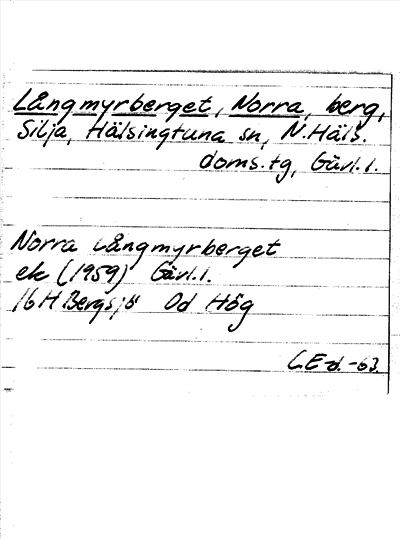 Långmyrberget, Norra, berg,
Silja, Hälsingtuna sn, N. Häls.
doms.tg, Gävl. l.
Norra Långmyrberget
ek (1959) Gävl. l.
16 H Bergsjö Od Hög